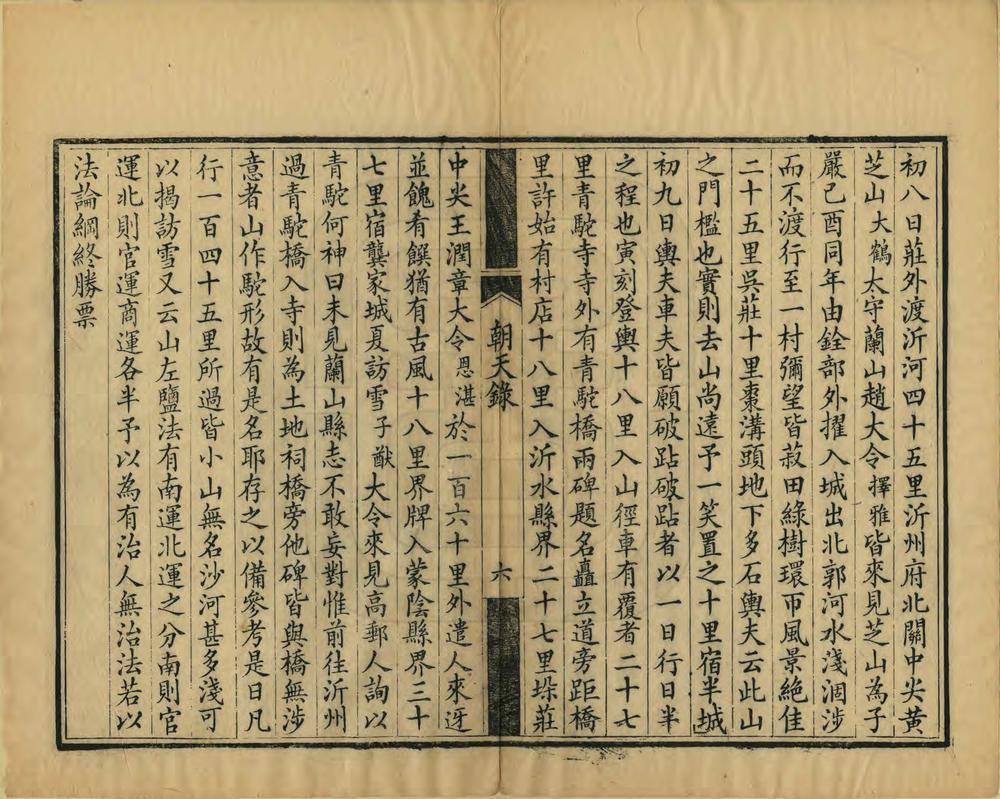 初八日莊外渡沂河四十五里沂州府北關中尖黃
芝山大鶴太守蘭山趙大令擇雅皆來見芝山為子
嚴己酉同年由銓部外擢入城出北郭河水淺涸涉
而不渡行至一村彌望皆菽田綠樹環帀風景絕佳
二十五里吳莊十里棗溝頭地下多石輿夫云此山
之門檻也實則去山尚遠予一笑置之十里宿半城
初九日輿夫車夫皆願破跕破跕者以一日行日半
之程也寅刻登輿十八里入山徑車有覆者二十七
里青駝寺寺外有青駝橋兩碑題名矗立道旁距橋
里許始有村店十八里入沂水縣界二十七里垛莊
朝天錄 六
中尖王潤章大令恩湛於一百六十里外遣人來迓
並餽肴饌猶有古風十八里界牌入蒙陰縣界三十
七里宿龔家城夏訪雪子猷大令來見高郵人詢以
青駝何神曰未見蘭山縣志不敢妄對惟前往沂州
過青駝橋入寺則為土地祠橋旁他碑皆與橋無涉
意者山作駝形故有是名耶存之以備參考是日凡
行一百四十五里所過皆小山無名沙河甚多淺可
以揭訪雪又云山左鹽法有南運北運之分南則官
運北則官運商運各半予以為有治人無治法若以
法論綱終勝票